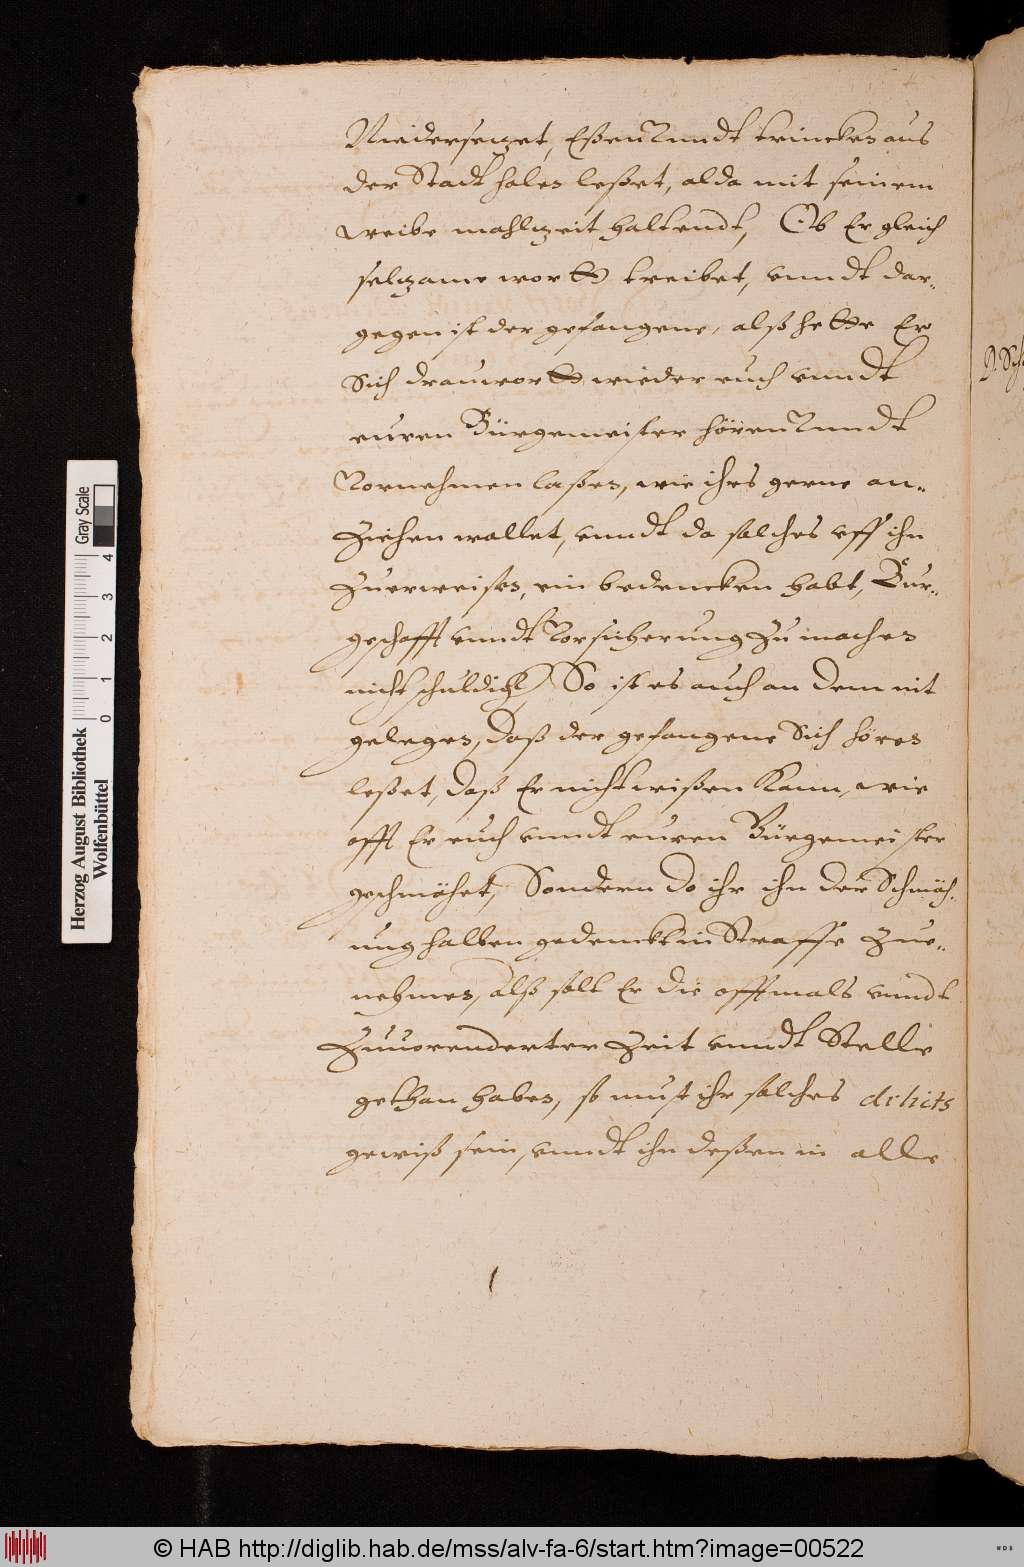 Niedersetzet, Eßen Vnndt trincken aus
der Stadt holen leßet, alda mit seinem
weibe mahlzeit haltendt, Ob Er gleich
seltzame wortt treibet, vnndt dar-
gegen ist der gefangene, alß hette Er
Sich drauwortt wieder euch vnndt
euren Bürgemeister hören Vnndt
Vornehmen laßen, wie ihrs gerne an-
Ziehen wollet, vnndt da solches vff ihn
Zuerweisen, ein bedencken habt, Bur-
geschafft vnndt Vorsicherung Zu machen
nicht schuldigk) So ist es auch an dem nit
gelegen, Daß der gefangene Sich hören
leßet, Daß Er nicht wißen Kann, wie
offt Er euch vnndt euren Bürgemeister
geschmöhet, Sondern do ihr ihn der Schmöh-
ung halben gedenckt in Straffe Zue-
nehmen, alß solt Er die offtmals vnndt
Zuuorenderter Zeit vnndt Stelle
gethan haben, so must ihr solches delicts
gewiß sein, vnndt ihn deßen in alle
D. Sch
Herzog August Bibliothek
Wolfenbüttel
0 1 2 3 4
Gray Scale
© HAB http://diglib.hab.de/mss/alv-fa-6/start.htm?image=00522
WDB